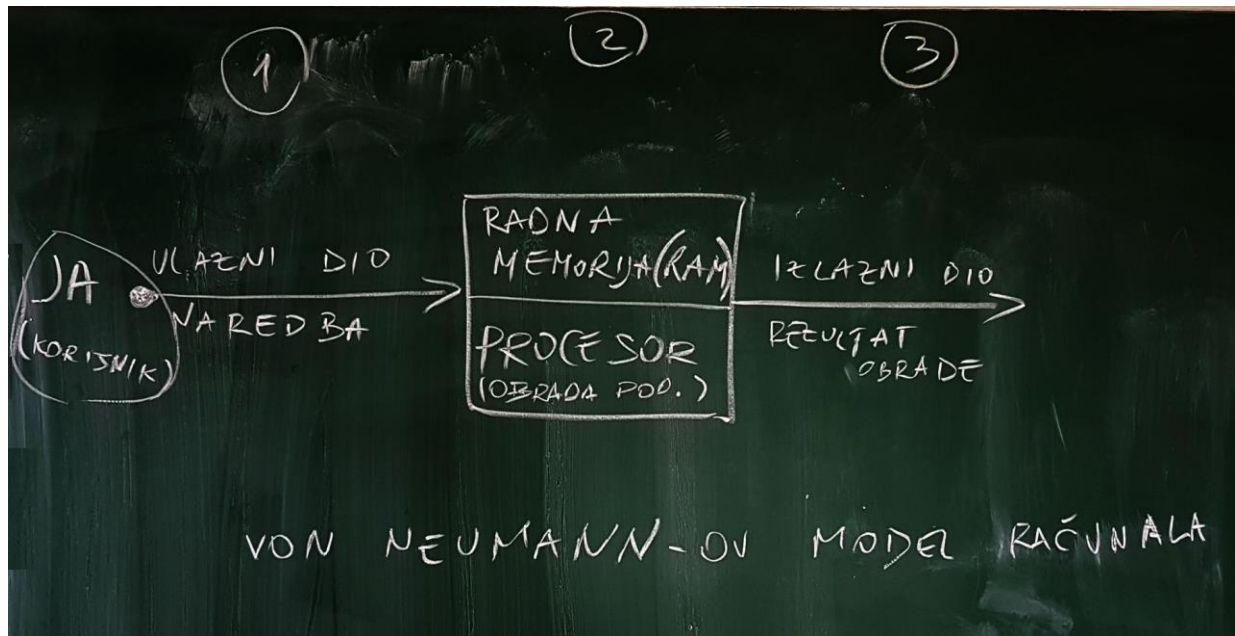 1
2
3
JA
(KORISNIK)
ULAZNI DIO
NAREDBA
RADNA
MEMORIJA (RAM)
PROCESOR
(OBRADA POD.)
IZLAZNI DIO
REZULTAT
OBRADE
VON NEUMANN-OV MODEL RAČUNALA